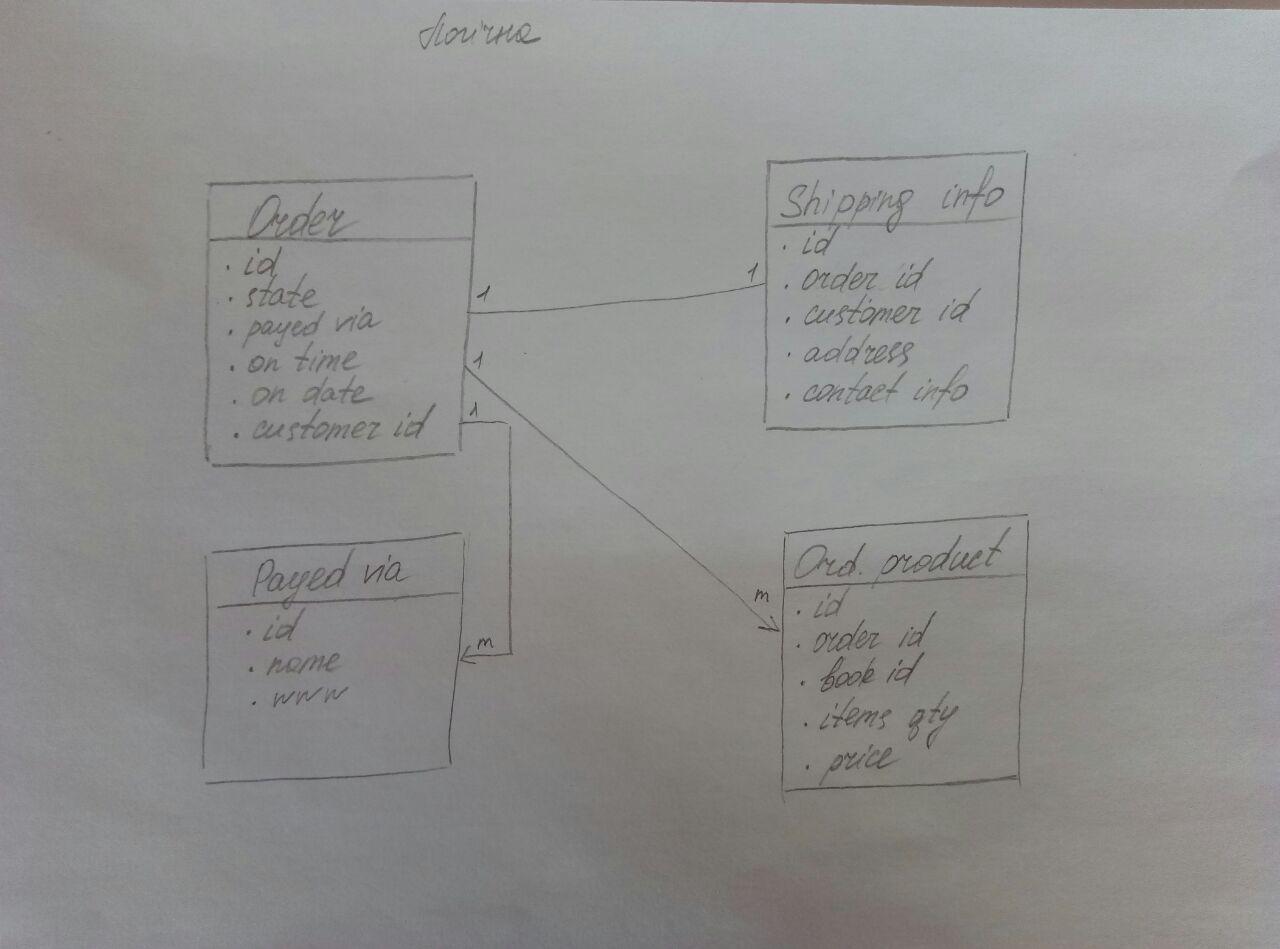 Логічна
Order
. id
. state
. payed via
. on time
. on date
. customer id
1
1
1
1
Shipping info
. id
. order id
. customer id
. address
. contact info
Payed via
. id
. name
m
m
Ord. product
. id
. order id
. book id
. items qty
. price